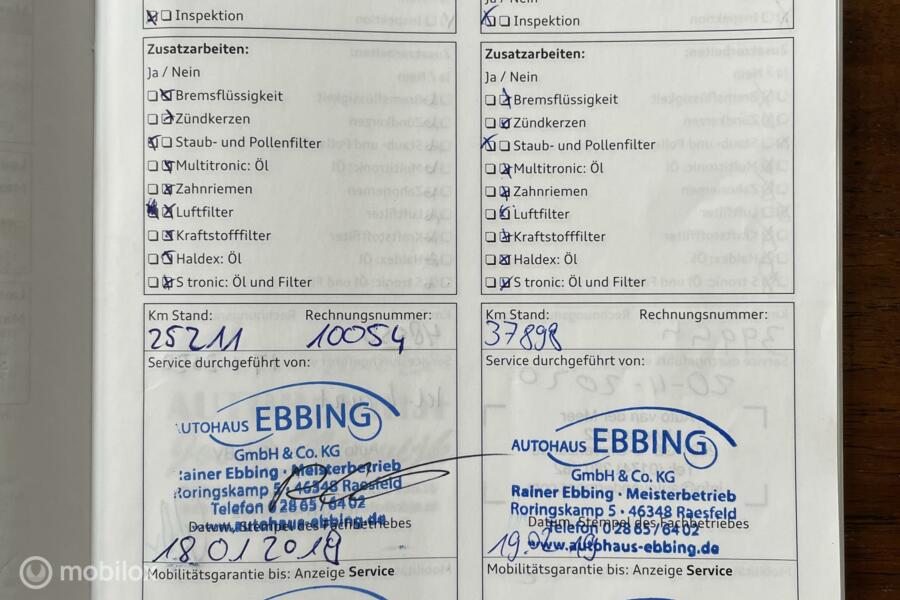 Inspektion
Zusatzarbeiten:
Ja / Nein
Bremsflüssigkeit
Zündkerzen
Staub- und Pollenfilter
Multitronic: Öl
Zahnriemen
Luftfilter
Kraftstofffilter
Haldex: Öl
S tronic: Öl und Filter
Km Stand: Rechnungsnummer:
25211 10054
Service durchgeführt von:
AUTOHAUS EBBING
GmbH & Co. KG
Rainer Ebbing · Meisterbetrieb
Roringskamp 5 · 46348 Raesfeld
Telefon 0 28 65 / 64 02
www.autohaus-ebbing.de
Datum, Stempel des Fachbetriebes
18.01 2019
Mobilitätsgarantie bis: Anzeige Service
Inspektion
Zusatzarbeiten:
Ja / Nein
Bremsflüssigkeit
Zündkerzen
Staub- und Pollenfilter
Multitronic: Öl
Zahnriemen
Luftfilter
Kraftstofffilter
Haldex: Öl
S tronic: Öl und Filter
Km Stand: Rechnungsnummer:
37898
Service durchgeführt von:
AUTOHAUS EBBING
GmbH & Co. KG
Rainer Ebbing · Meisterbetrieb
Roringskamp 5 · 46348 Raesfeld
Datum, Stempel des Fachbetriebes
Telefon 0 28 65 / 64 02
www.autohaus-ebbing.de
Mobilitätsgarantie bis: Anzeige Service
mobilox